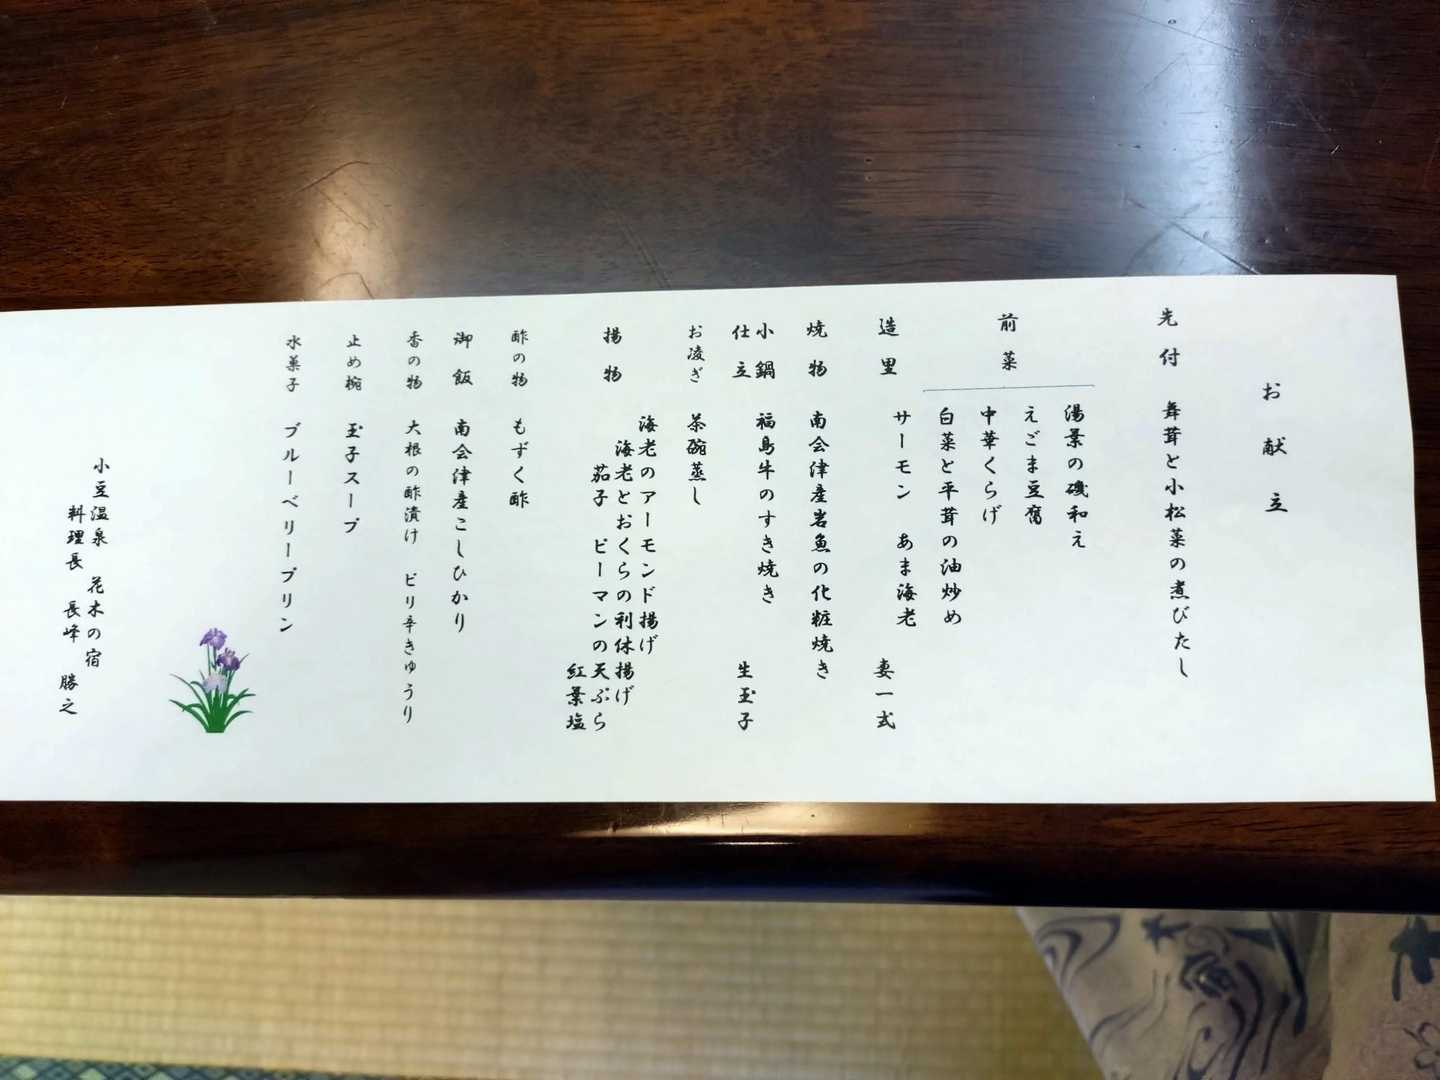 お献立
先付 舞茸と小松菜の煮びたし
前菜
湯葉の磯和え
えごま豆腐
中華くらげ
白菜と平茸の油炒め
造里 サーモン あま海老
妻一式
焼物 南会津産岩魚の化粧焼き
小鍋仕立 福島牛のすき焼き
生玉子
お凌ぎ 茶碗蒸し
揚物 海老のアーモンド揚げ
海老とおくらの利休揚げ
茄子 ピーマンの天ぷら
紅葉塩
酢の物 もずく酢
御飯 南会津産こしひかり
香の物 大根の酢漬け ピリ辛きゅうり
止め椀 玉子スープ
水菓子 ブルーベリープリン
小豆温泉 花木の宿
料理長 長峰 勝之